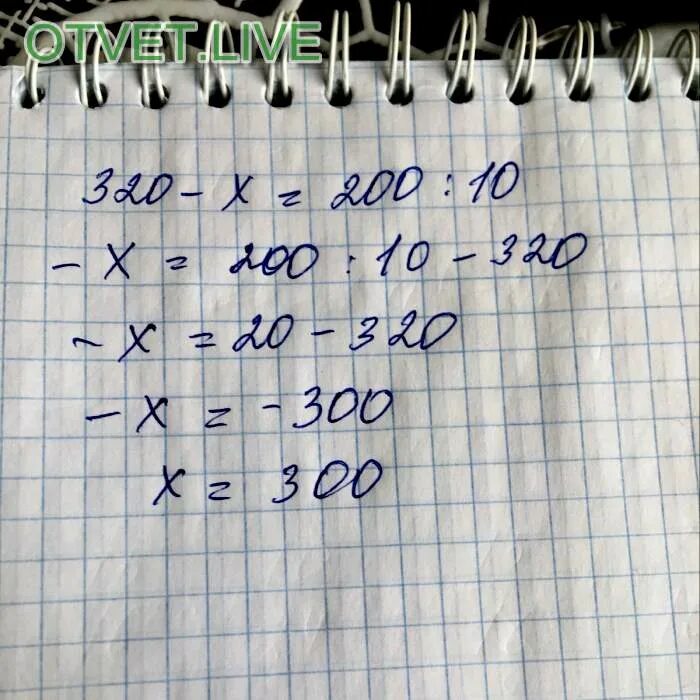 OTVET.LIVE
320 - x = 200 : 10
- x = 200 : 10 - 320
- x = 20 - 320
- x = - 300
x = 300